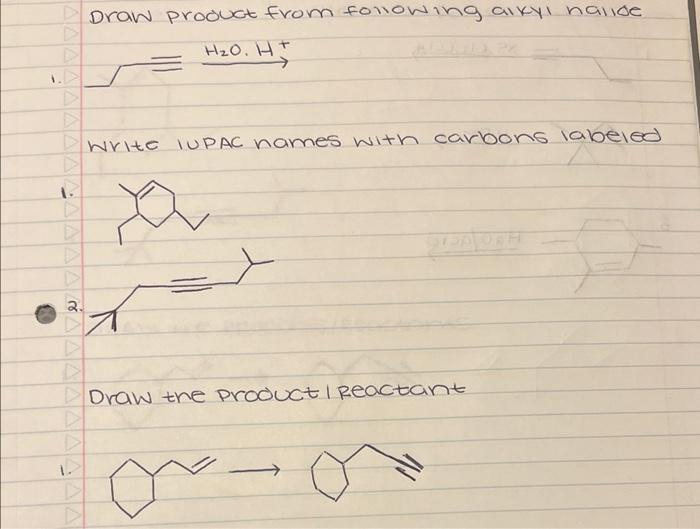 Draw product from following alkyl halide
H2O. H+
1.
Write IUPAC names with carbons labeled
1.
2.
Draw the product / Reactant
1.